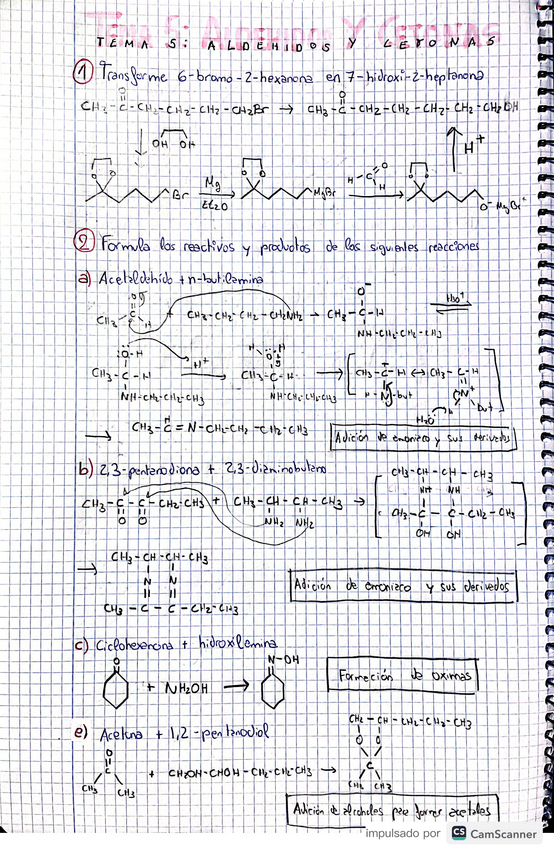 TEMA 5: ALDEHIDOS Y CETONAS
① Transforme 6-bromo-2-hexanona en 7-hidroxi-2-heptanona
O O
CH₃-C-CH₂-CH₂-CH₂-CH₂Br → CH₃-C-CH₂-CH₂-CH₂-CH₂-CH₂OH
OH OH H⁺
O O Br Mg Et₂O O O MgBr H-C-H O O O O⁻ MgBr⁺
② Formula los reactivos y productos de las siguientes reacciones
a) Acetaldehido + n-butilamina
CH₃-C-H + CH₃-CH₂-CH₂-CH₂NH₂ → CH₃-C-H H₃O⁺
O⁻
NH-CH₂-CH₂-CH₃
:O-H H⁺ H H
CH₃-C-H → CH₃-C-H → CH₃-C-H ↔ CH₃-C-H
NH-CH₂-CH₂-CH₃ NH-CH₂-CH₂-CH₃ H-N-but N⁺
H₂O H but
→ CH₃-C=N-CH₂-CH₂-CH₂-CH₃
H
Adición de amoniaco y sus derivados
b) 2,3-pentanodiona + 2,3-diaminobutano
CH₃-CH-CH-CH₃
CH₃-C-C-CH₂-CH₃ + CH₃-CH-CH-CH₃ →
O O NH₂ NH₂
NH NH
CH₃-C-C-CH₂-CH₃
OH OH
→ CH₃-CH-CH-CH₃
N N
CH₃-C-C-CH₂-CH₃
Adición de amoniaco y sus derivados
c) Ciclohexanona + hidroxilamina
O N-OH
+ NH₂OH →
Formación de oximas
e) Acetona + 1,2-pentanodiol
CH₂-CH-CH₂-CH₂-CH₃
O O O
C + CH₂OH-CHOH-CH₂-CH₂-CH₃ → C
CH₃ CH₃ CH₃ CH₃
Adición de alcoholes para formar acetales
impulsado por CS CamScanner